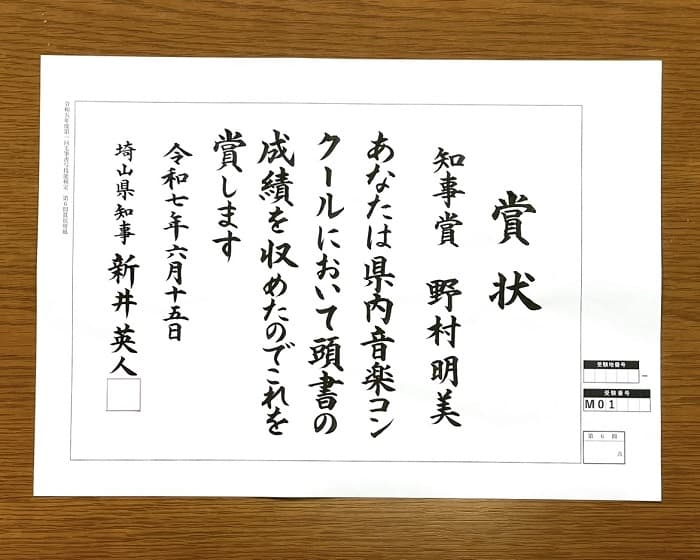 賞状
知事賞 野村明美
あなたは県内音楽コン
クールにおいて頭書の
成績を収めたのでこれを
賞します
令和七年六月十五日
埼山県知事 新井英人
令和五年度第一回毛筆書写技能検定 第6問練習用紙
受験地番号
受験番号
M01
第 6 問
点